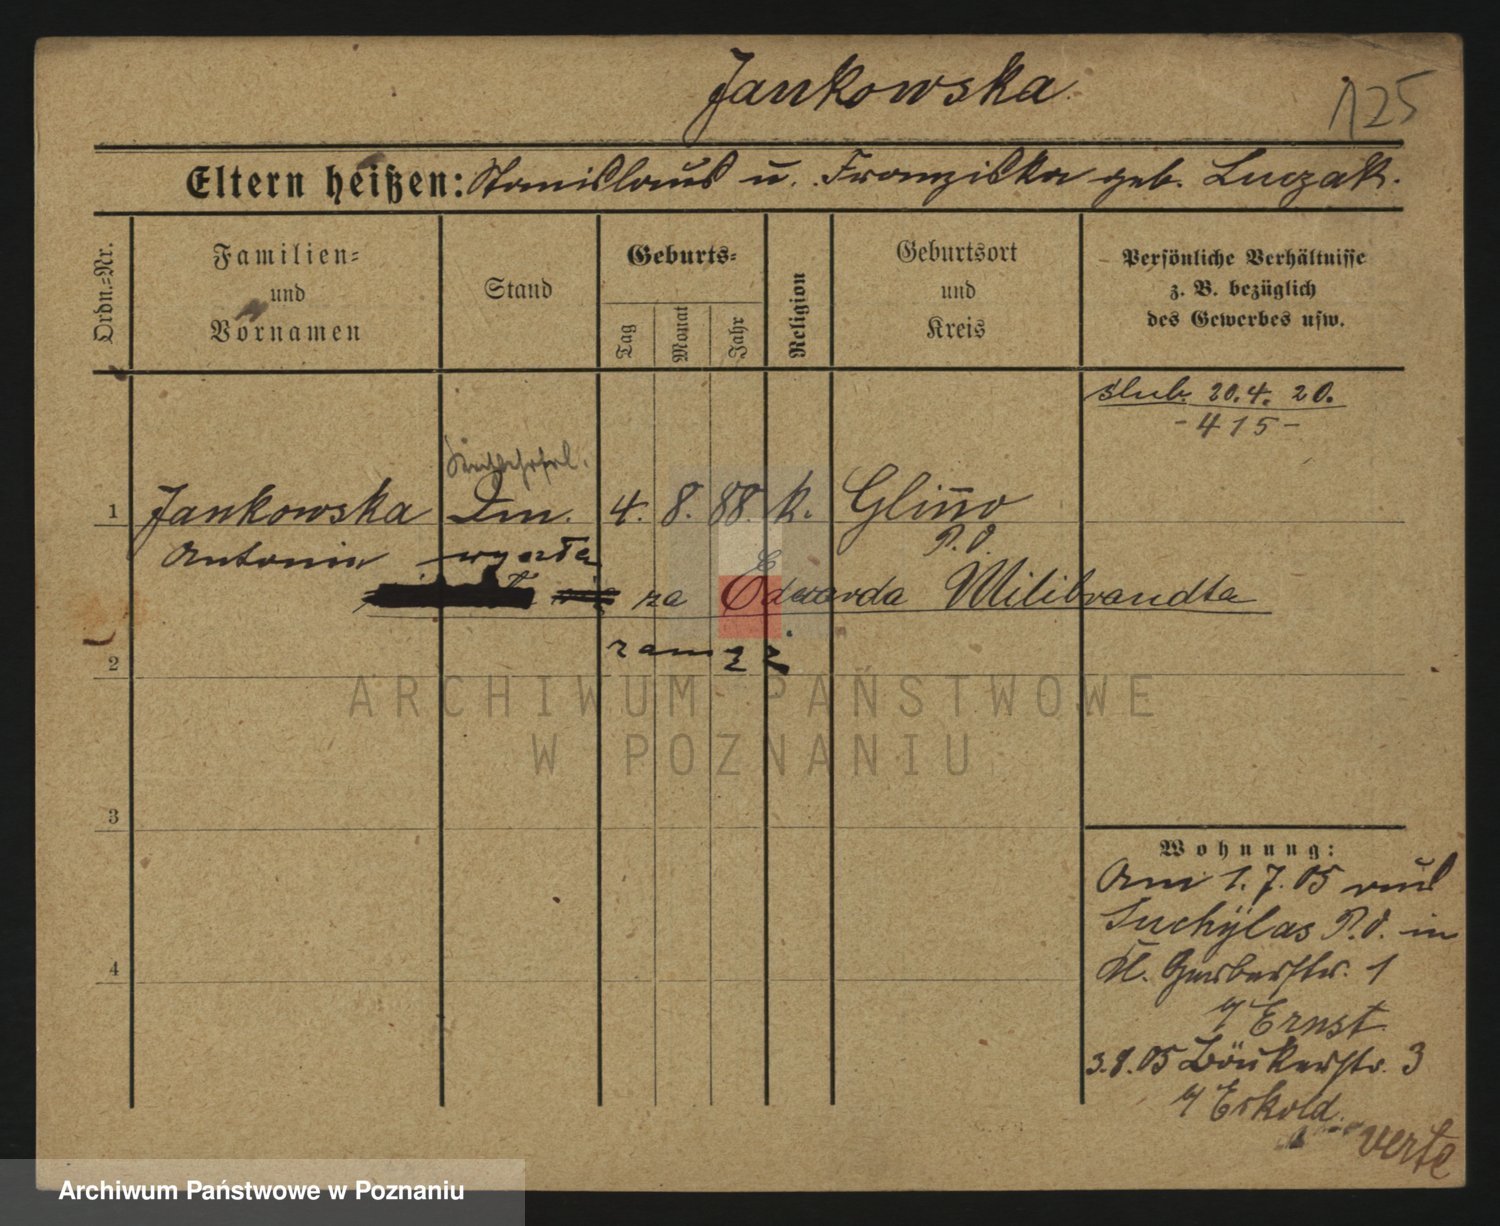 Jankowska
125
Eltern heißen: Stanislaus u. Franziska geb. Luczak.
Ordn.-Nr.
Familien- und Vornamen
Stand
Geburts-
Tag
Monat
Jahr
Religion
Geburtsort und Kreis
Persönliche Verhältnisse z. B. bezüglich des Gewerbes usw.
slub. 20.4. 20.
- 415 -
1 Jankowska Dm. 4. 8. 88. k. Glinno
Antonia wyszła P.O.
za Edwarda Wilibrandta
zamąż
2
3
4
Wohnung:
Am 1.7.05 aus
Suchylas P.O. in
Kl. Gerberstr. 1
b/ Ernst
3.8.05 Bäckerstr. 3
b/ Eskold
verte
ARCHIWUM PAŃSTWOWE
W POZNANIU
Archiwum Państwowe w Poznaniu